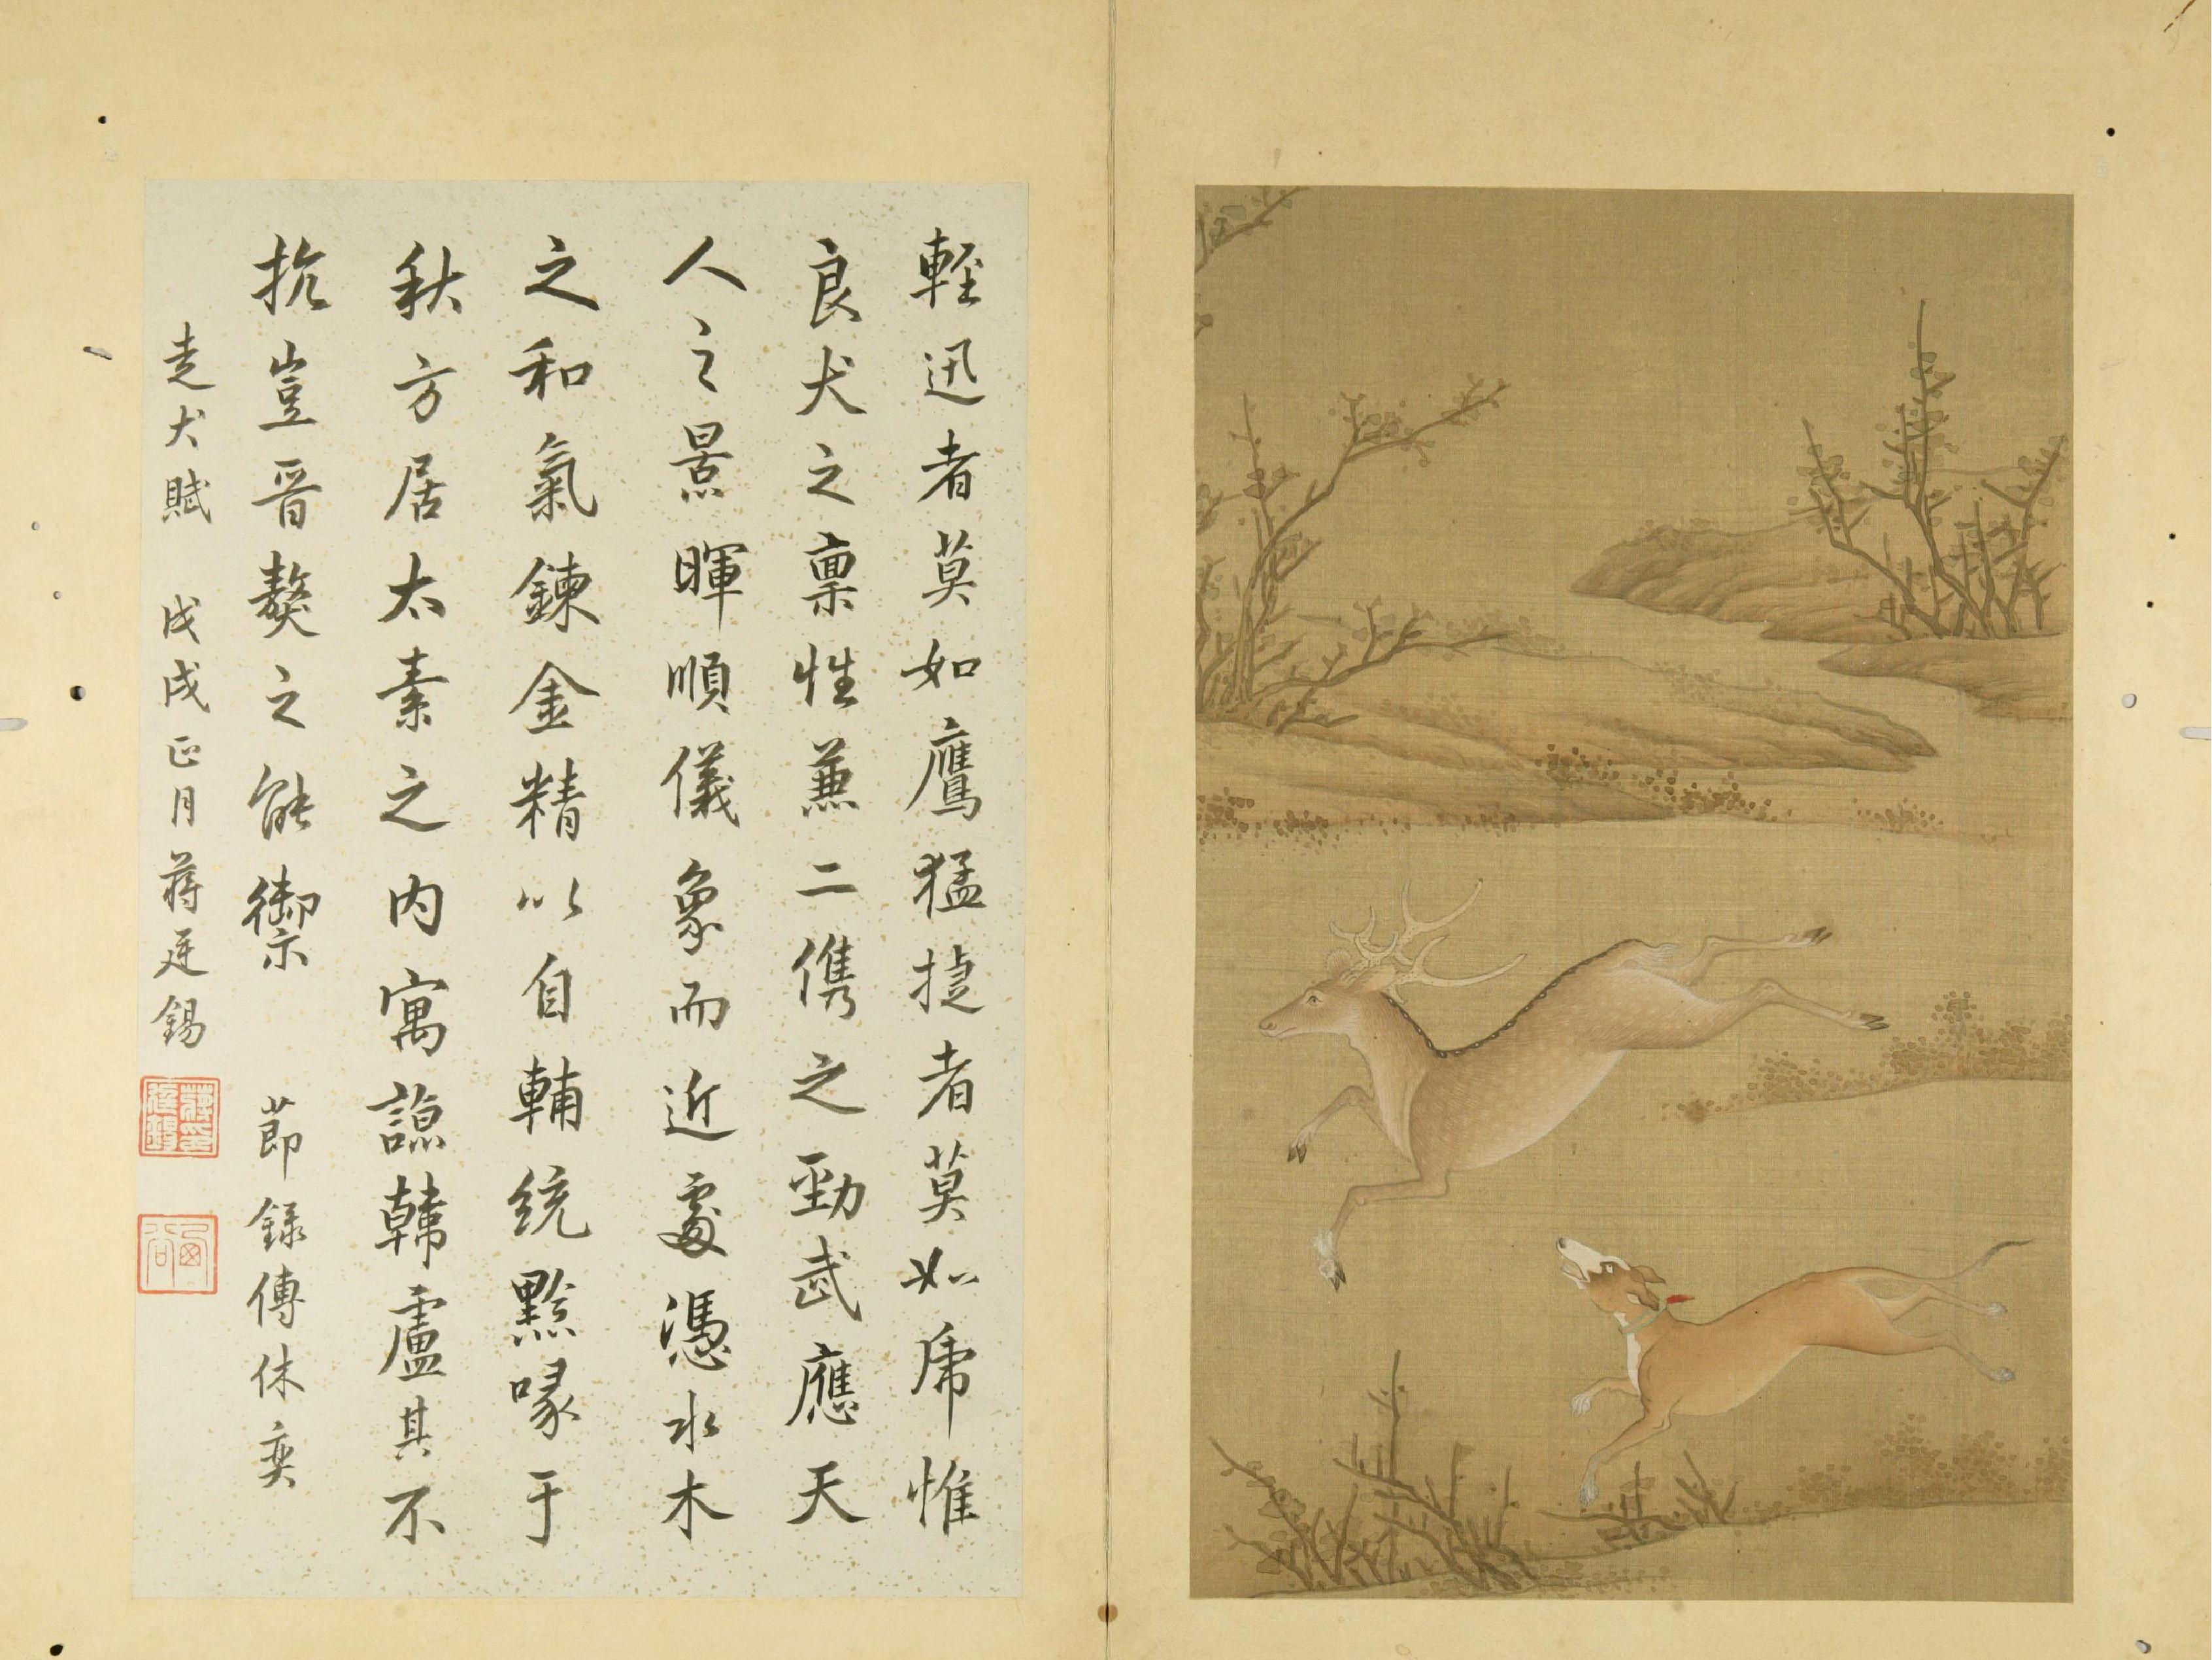 輕迅者莫如鷹猛捷者莫如虎惟
良犬之稟性兼二儁之勁武應天
人之景暉順儀象而近處憑水木
之和氣鍊金精以自輔統黔喙于
秋方居太素之內寓諒韓盧其不
抗豈晉獒之能禦 節錄傅休奕
走犬賦 戊戌正月蔣廷錫
蔣廷錫印
酉谷